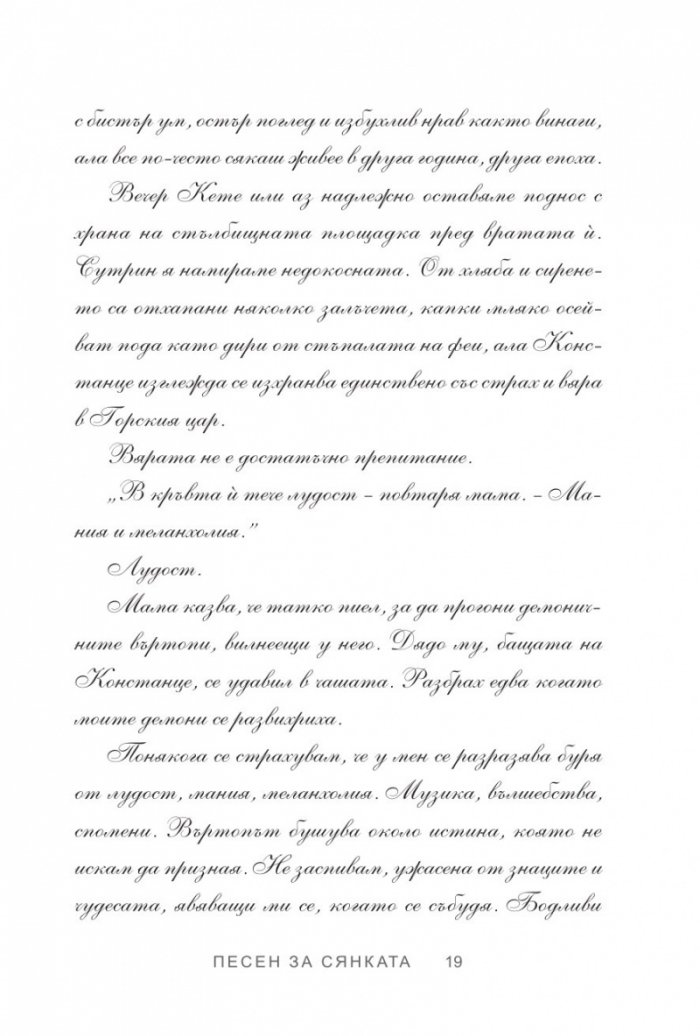 с бистър ум, остър поглед и избухлив нрав както винаги,
ала все по-често сякаш живее в друга година, друга епоха.
Вечер Кете или аз надлежно оставяме поднос с
храна на стълбищната площадка пред вратата ѝ.
Сутрин я намираме недокосната. От хляба и сирене-
то са отхапани няколко залъчета, капки мляко осей-
ват пода като дири от стъпалата на феи, ала Конс-
танце изглежда се изхранва единствено със страх и вяра
в Горския цар.
Вярата не е достатъчно препитание.
„В кръвта ѝ тече лудост – повтаря мама. – Ма-
ния и меланхолия.”
Лудост.
Мама казва, че татко пиел, за да прогони демонич-
ните въртопи, вилнеещи у него. Дядо му, бащата на
Констанце, се удавил в чашата. Разбрах едва когато
моите демони се развихриха.
Понякога се страхувам, че у мен се разразява буря
от лудост, мания, меланхолия. Музика, вълшебства,
спомени. Въртопът бушува около истина, която не
искам да призная. Не заспивам, ужасена от знаците и
чудесата, явяващи ми се, когато се събудя. Бодливи
ПЕСЕН ЗА СЯНКАТА 19